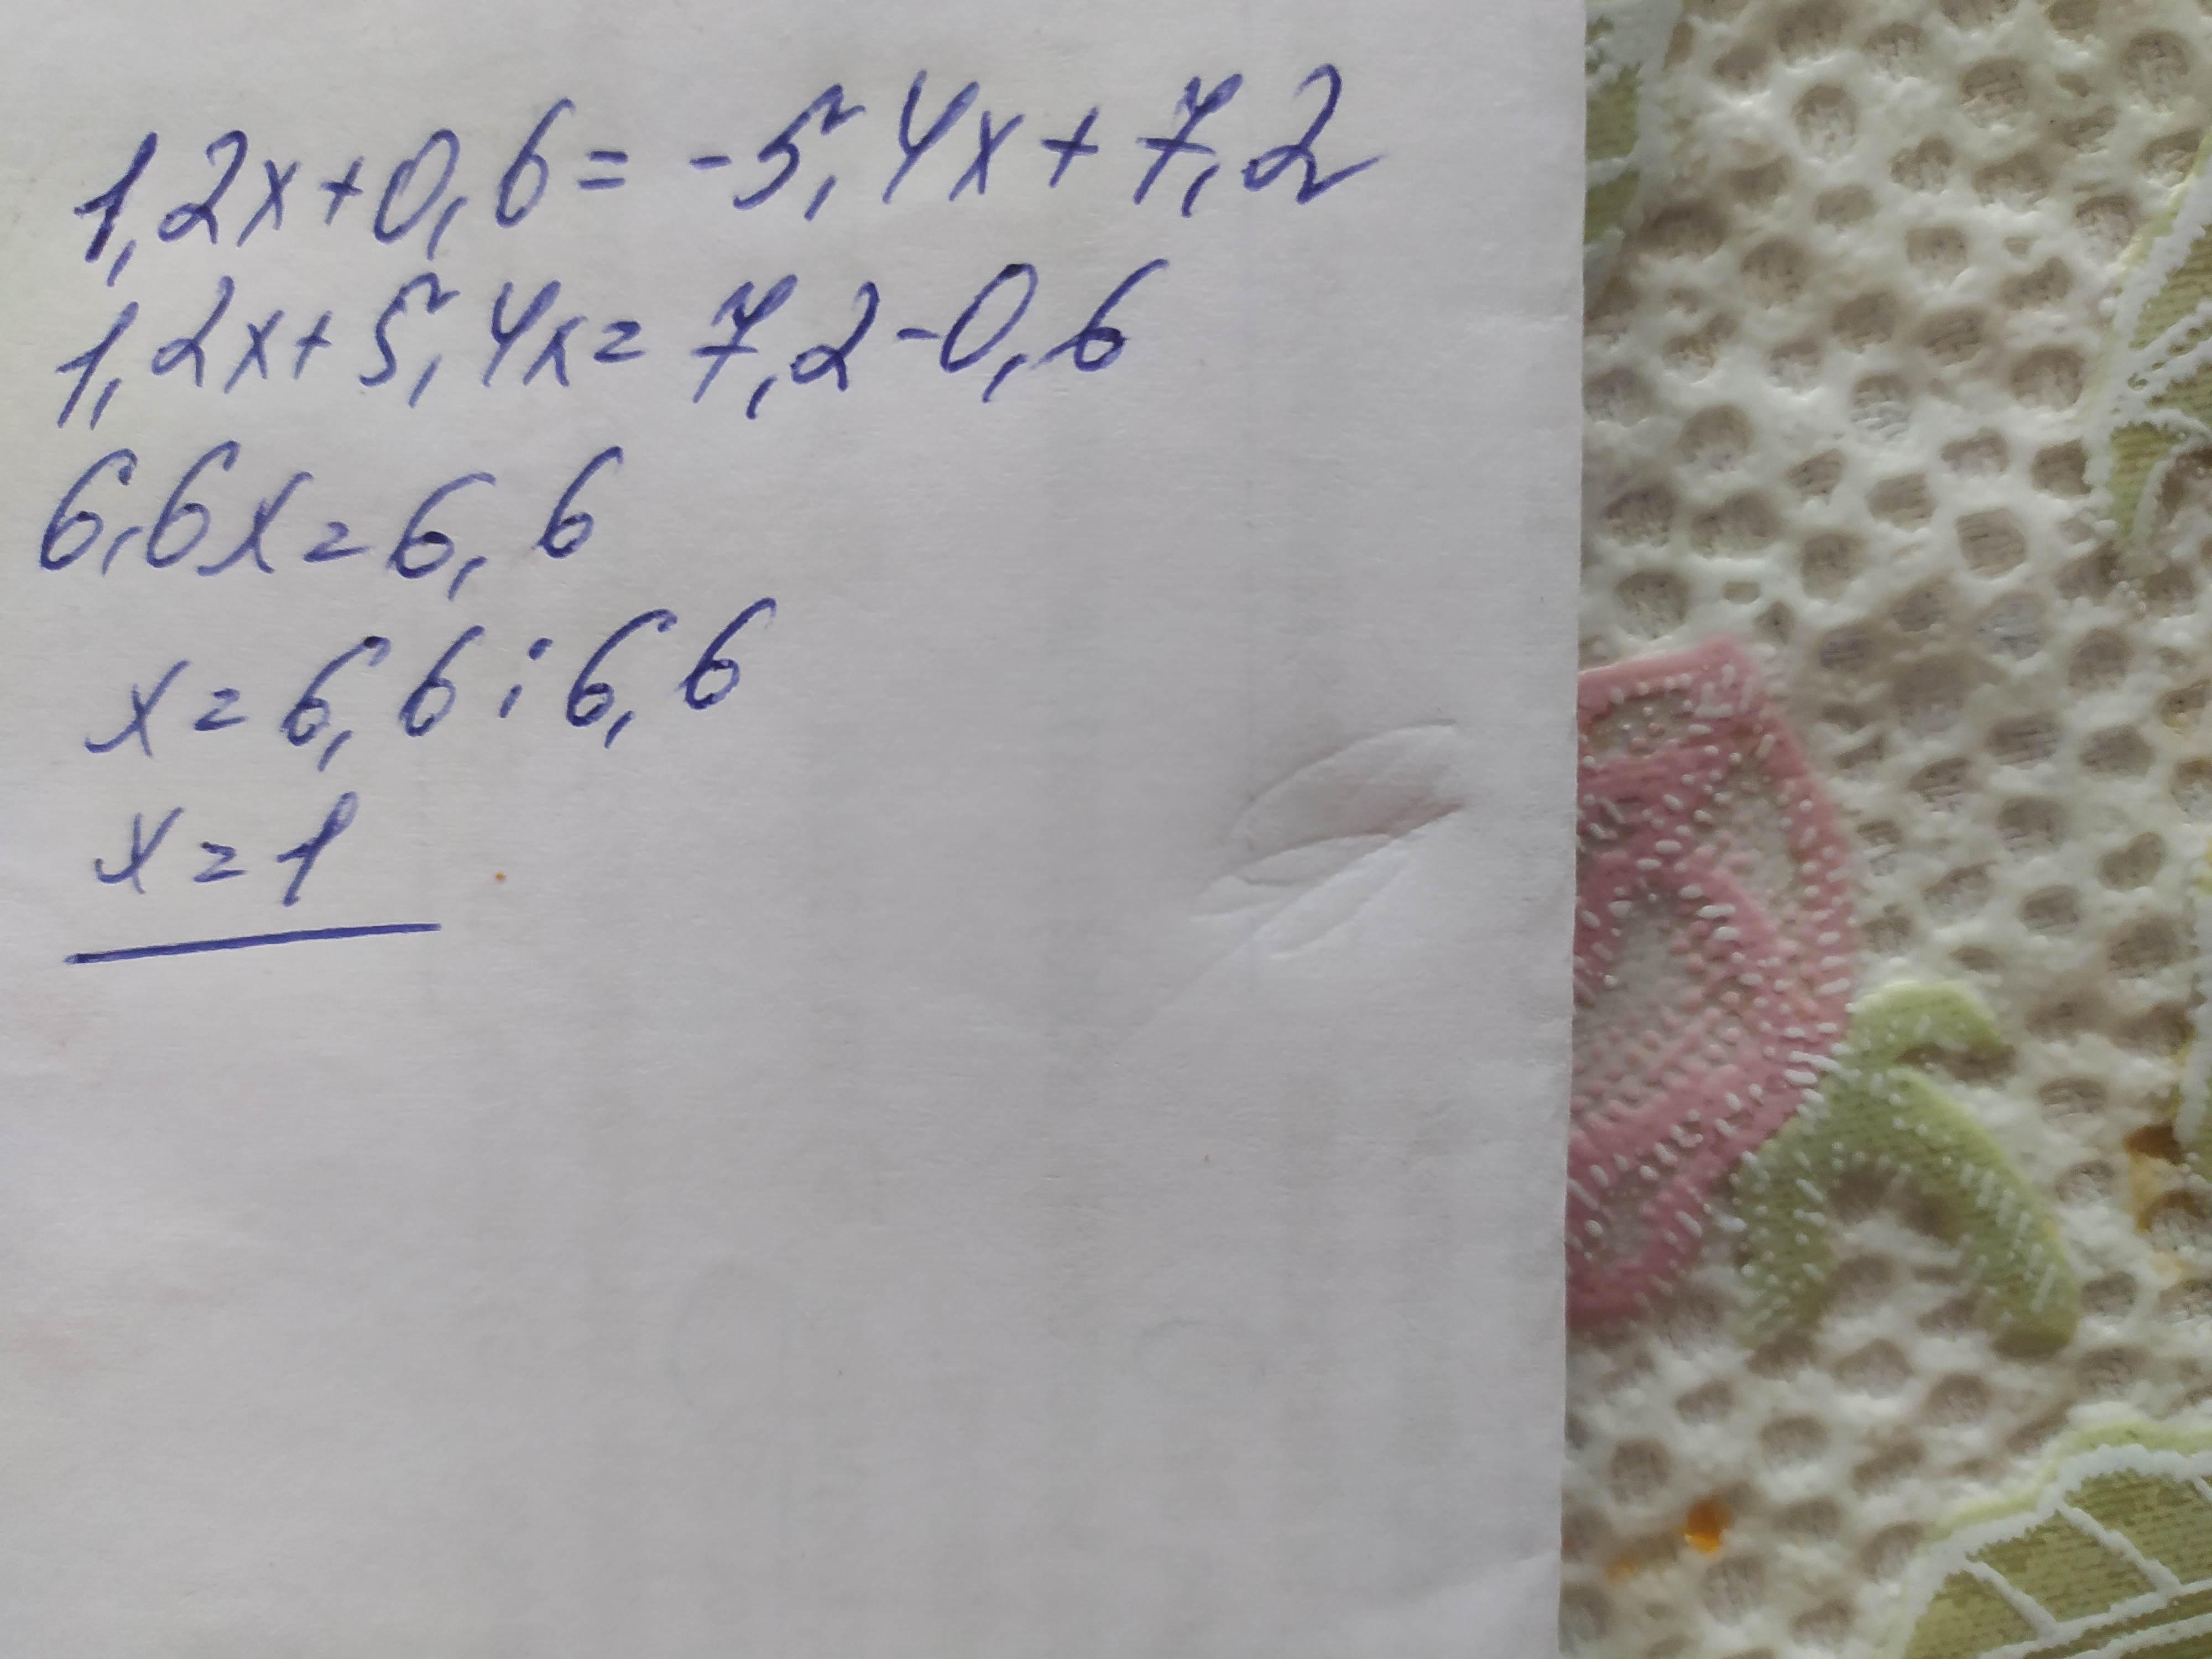 1,2x+0,6=-5,4x+7,2
1,2x+5,4x=7,2-0,6
6,6x=6,6
x=6,6:6,6
x=1